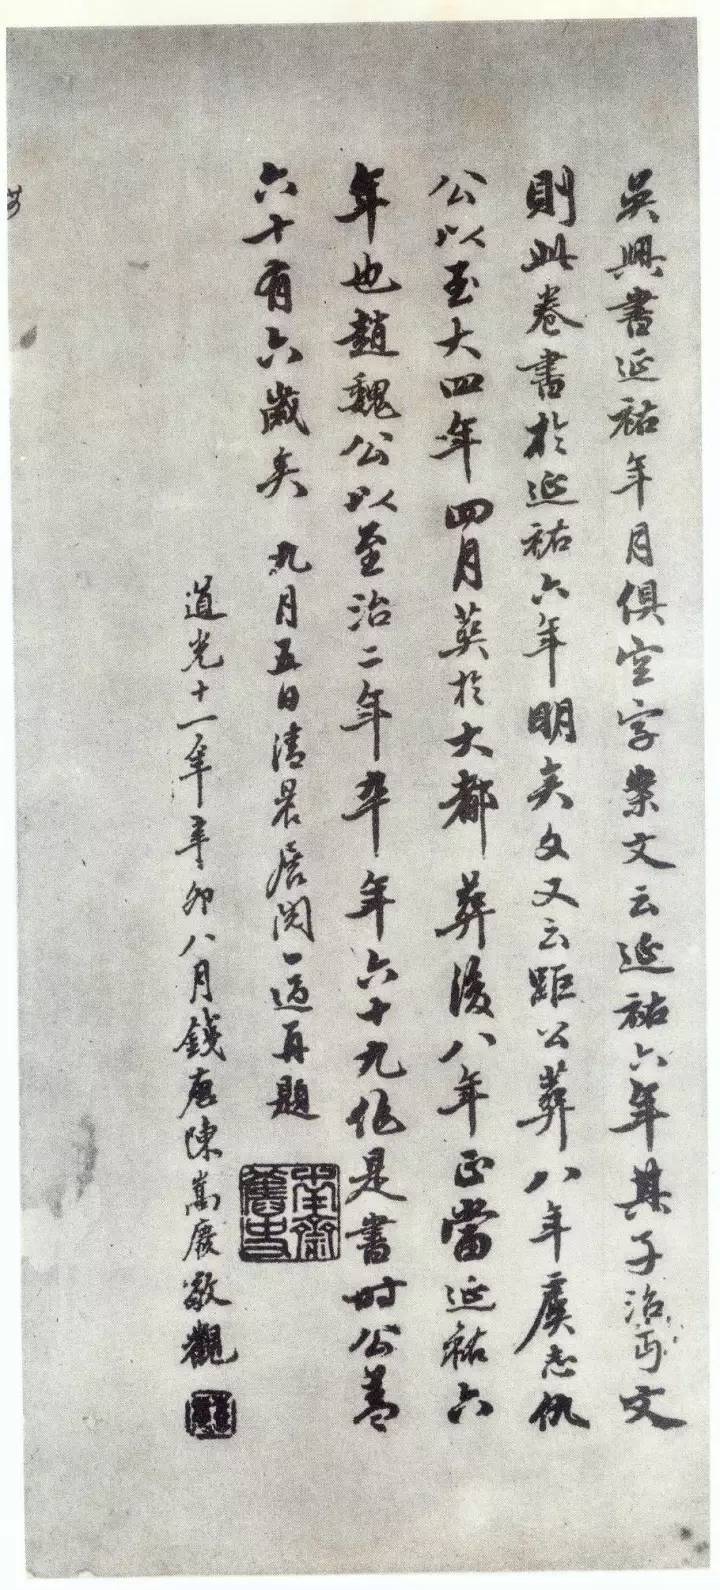 吳興書延祐年月俱空字案文云延祐六年其子治丐文
則此卷書於延祐六年明矣文又云距公葬八年虞志仇
公以至大四年四月於大都葬後八年正當延祐六
年也趙魏公以至治二年卒年六十九作是書時公蓋
六十有六歲矣 九月五日清晨展閱一過再題
南齋舊史
道光十一年辛卯八月錢唐陳嵩慶敬觀